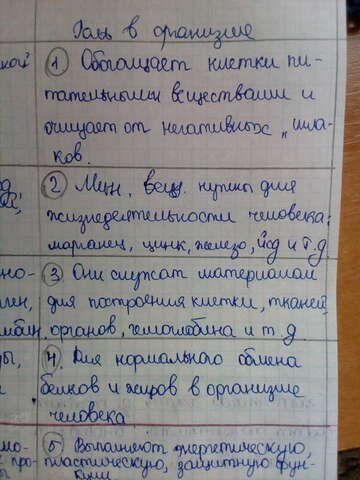 Роль в организме
кой
① Обогащает клетки пи-
тательными веществами и
очищает от негативных „шла-
ков.
② Мин. вещ. нужны для
жизнедеятельности человека:
марганец, цинк, железо, йод и т.д.
но-
③ Они служат материалом
ген,
для построения клетки, тканей,
мбин,
органов, гемоглобина и т.д.
ры,
④. Для нормального обмена
белков и жиров в организме
человека
мо-
⑤ Выполняют энергетическую,
про-
пластическую, защитную функ-
ции